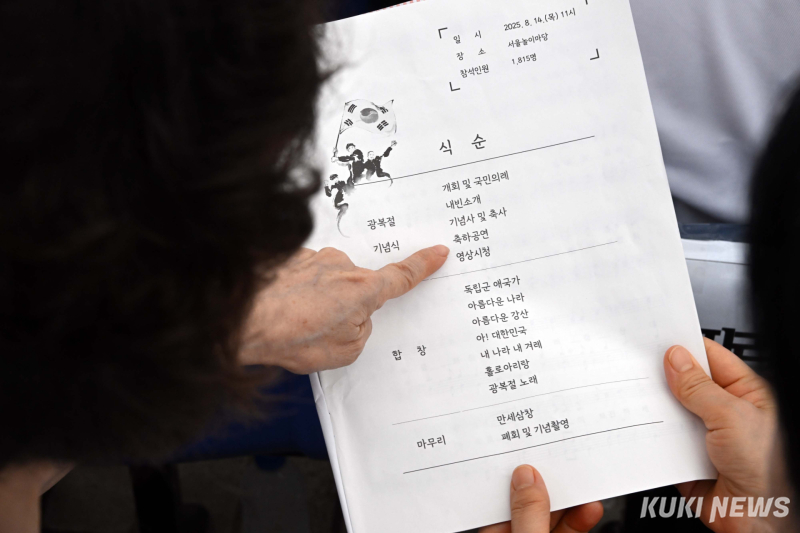 일 시 2025. 8. 14.(목) 11시
장 소 서울놀이마당
참석인원 1,815명
식 순
개회 및 국민의례
내빈소개
광복절 기념사 및 축사
기념식 축하공연
영상시청
독립군 애국가
아름다운 나라
아름다운 강산
아! 대한민국
합 창 내 나라 내 겨레
홀로아리랑
광복절 노래
만세삼창
마무리 폐회 및 기념촬영
KUKI NEWS